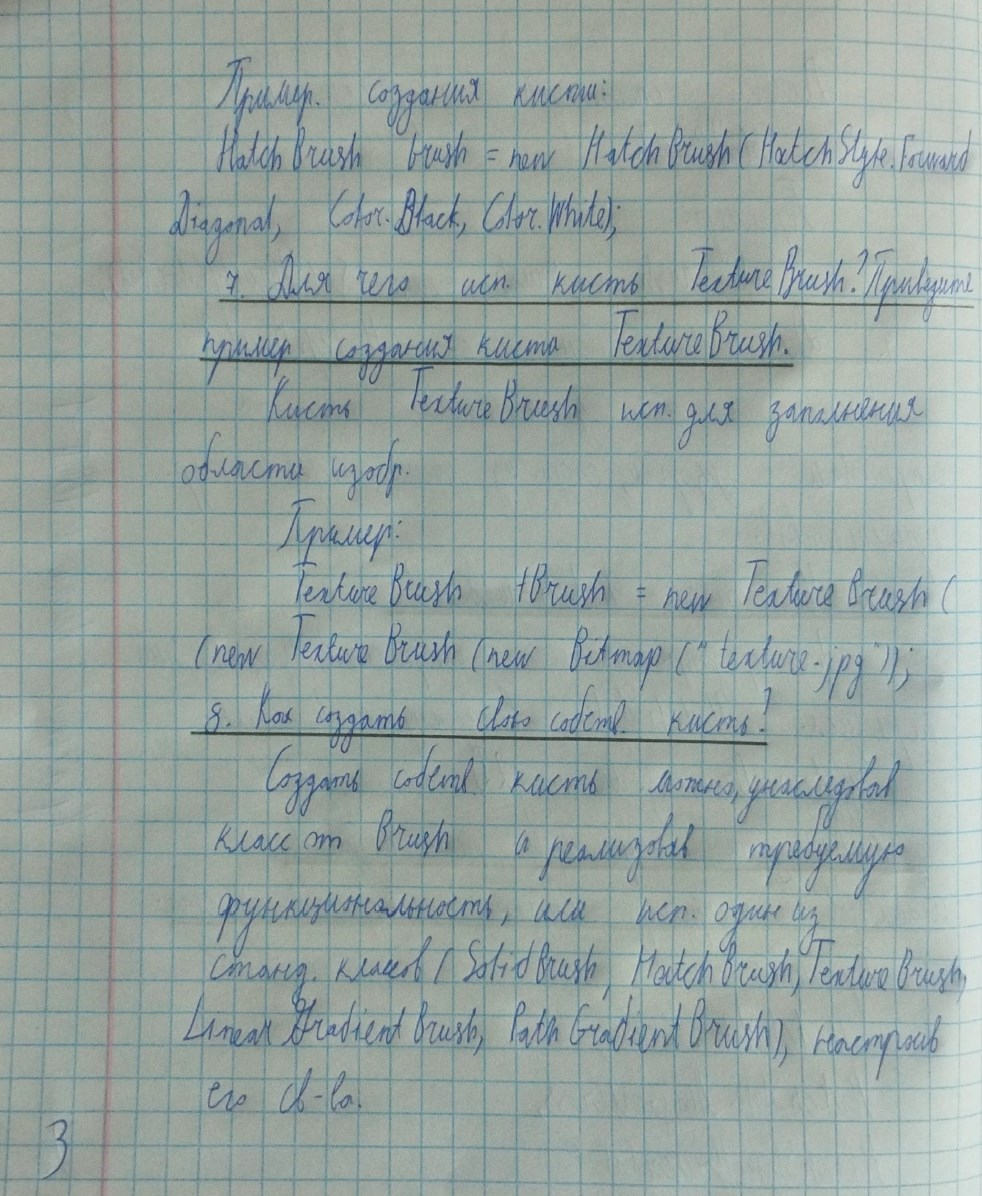 Пример. создания кисти:
HatchBrush brush = new HatchBrush(HatchStyle.Forward
Diagonal, Color.Black, Color.White);
7. Для чего исп. кисть TextureBrush? Приведите
пример создания кисти TextureBrush.
Кисть TextureBrush исп. для заполнения
области изобр.
Пример:
TextureBrush tBrush = new TextureBrush (
(new TextureBrush (new Bitmap ("texture.jpg"));
8. Как создать свою собств. кисть?
Создать собств кисть можно, унаследовав
класс от Brush и реализовав требуемую
функциональность, или исп. один из
станд. классов (SolidBrush, HatchBrush, TextureBrush,
LinearGradientBrush, PathGradientBrush), настроив
его св-ва.
3